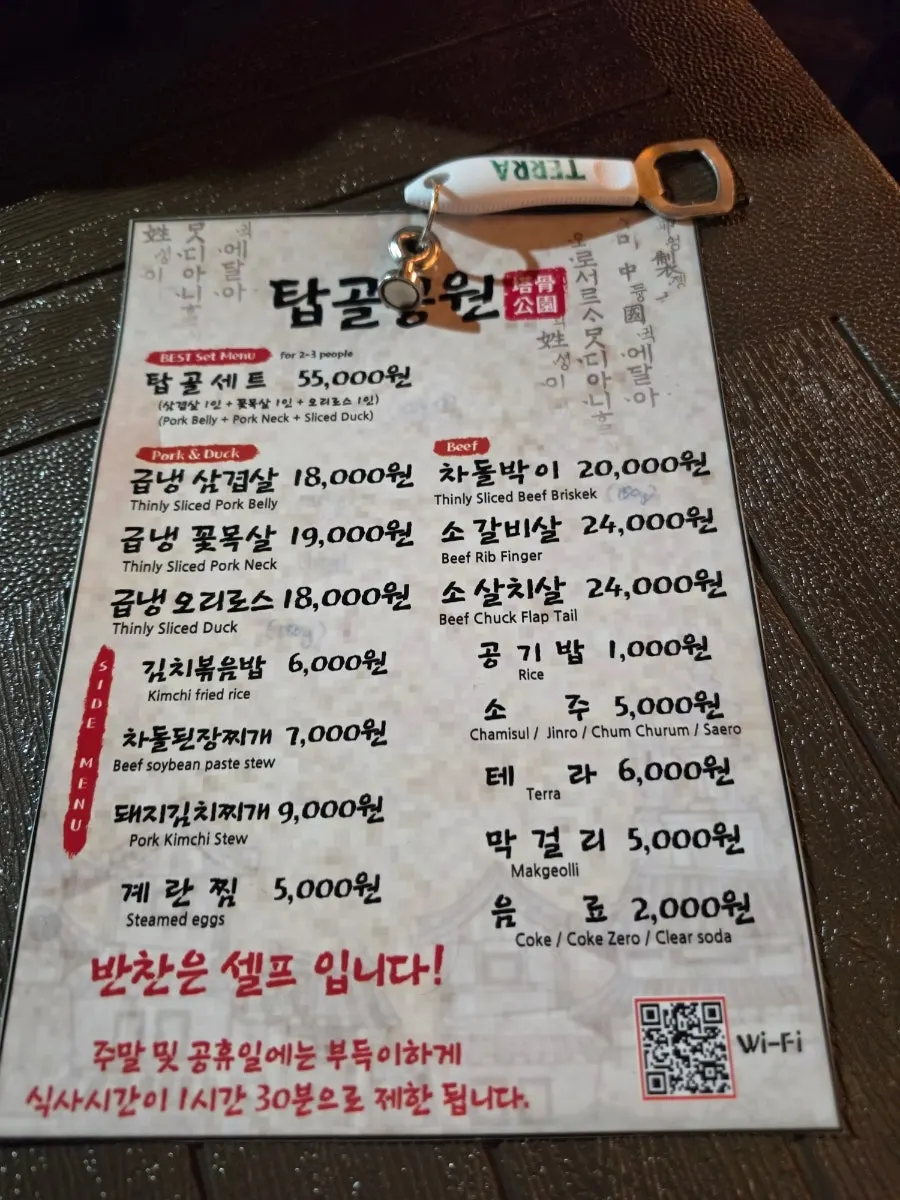 TERRA
탑골공원
塔骨
公園
BEST Set Menu for 2-3 people
탑골세트 55,000원
(삼겹살 1인 + 꽃목살 1인 + 오리로스 1인)
(Pork Belly + Pork Neck + Sliced Duck)
Pork & Duck
급냉 삼겹살 18,000원
Thinly Sliced Pork Belly
급냉 꽃목살 19,000원
Thinly Sliced Pork Neck
급냉 오리로스 18,000원
Thinly Sliced Duck
(150g)
Beef
차돌박이 20,000원
Thinly Sliced Beef Briskek (150g)
소 갈비살 24,000원
Beef Rib Finger
소 살치살 24,000원
Beef Chuck Flap Tail
SIDE MENU
김치볶음밥 6,000원
Kimchi fried rice
차돌된장찌개 7,000원
Beef soybean paste stew
돼지김치찌개 9,000원
Pork Kimchi Stew
계란찜 5,000원
Steamed eggs
공기밥 1,000원
Rice
소주 5,000원
Chamisul / Jinro / Chum Churum / Saero
테라 6,000원
Terra
막걸리 5,000원
Makgeolli
음료 2,000원
Coke / Coke Zero / Clear soda
반찬은 셀프 입니다!
주말 및 공휴일에는 부득이하게
식사시간이 1시간 30분으로 제한 됩니다.
Wi-Fi